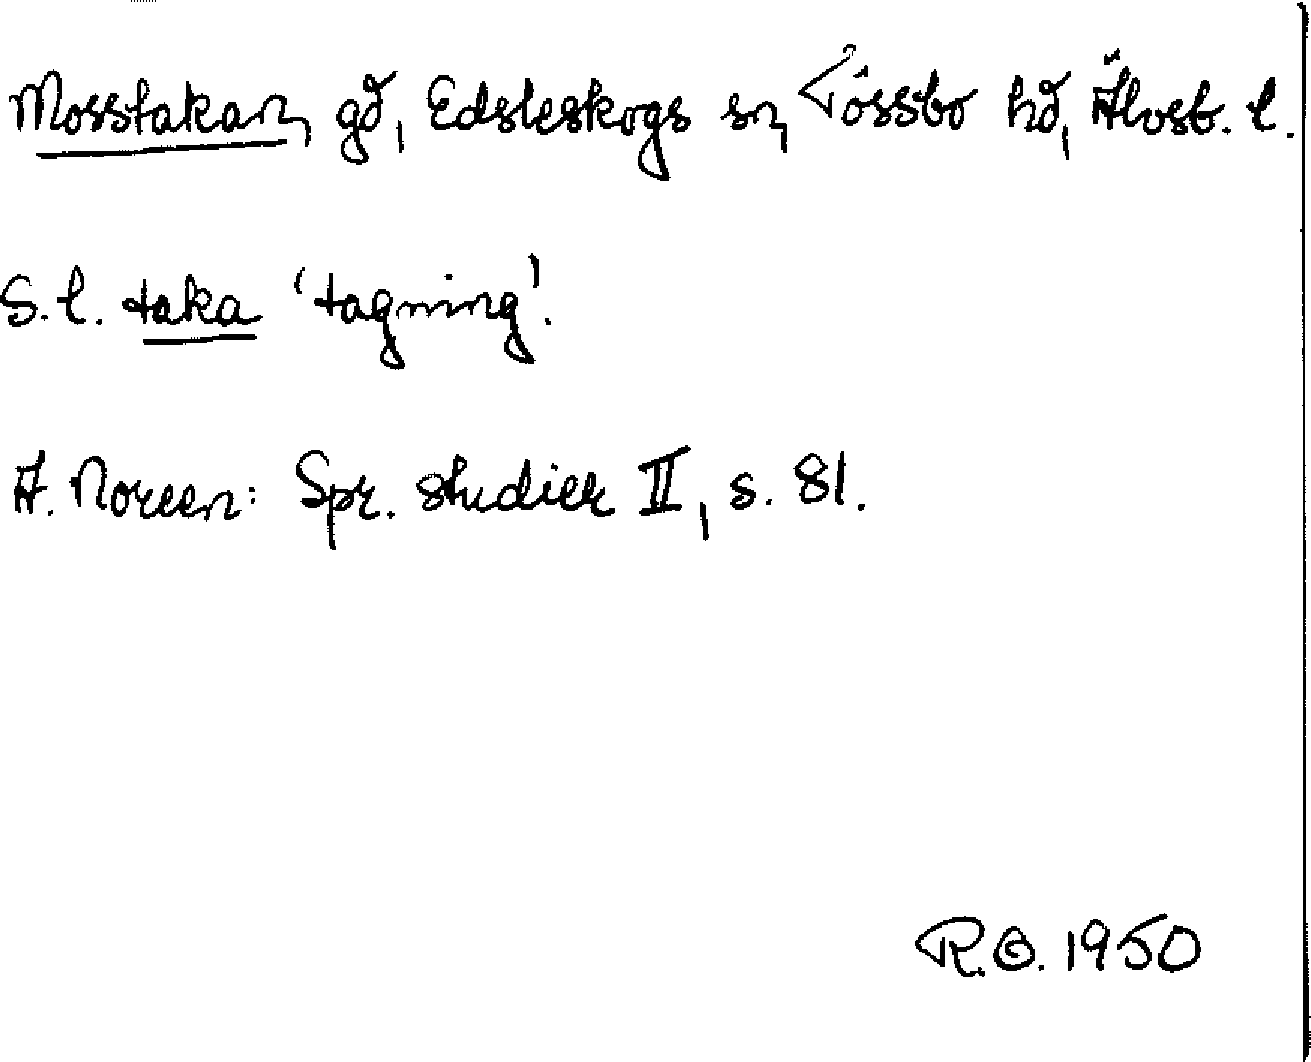 Mosstakan, gd, Edsleskogs sn, Tössbo hd, Älvsb. l.
S.l. taka 'tagning'.
A. Noreen: Spr. studier II, s. 81.
R.O. 1950